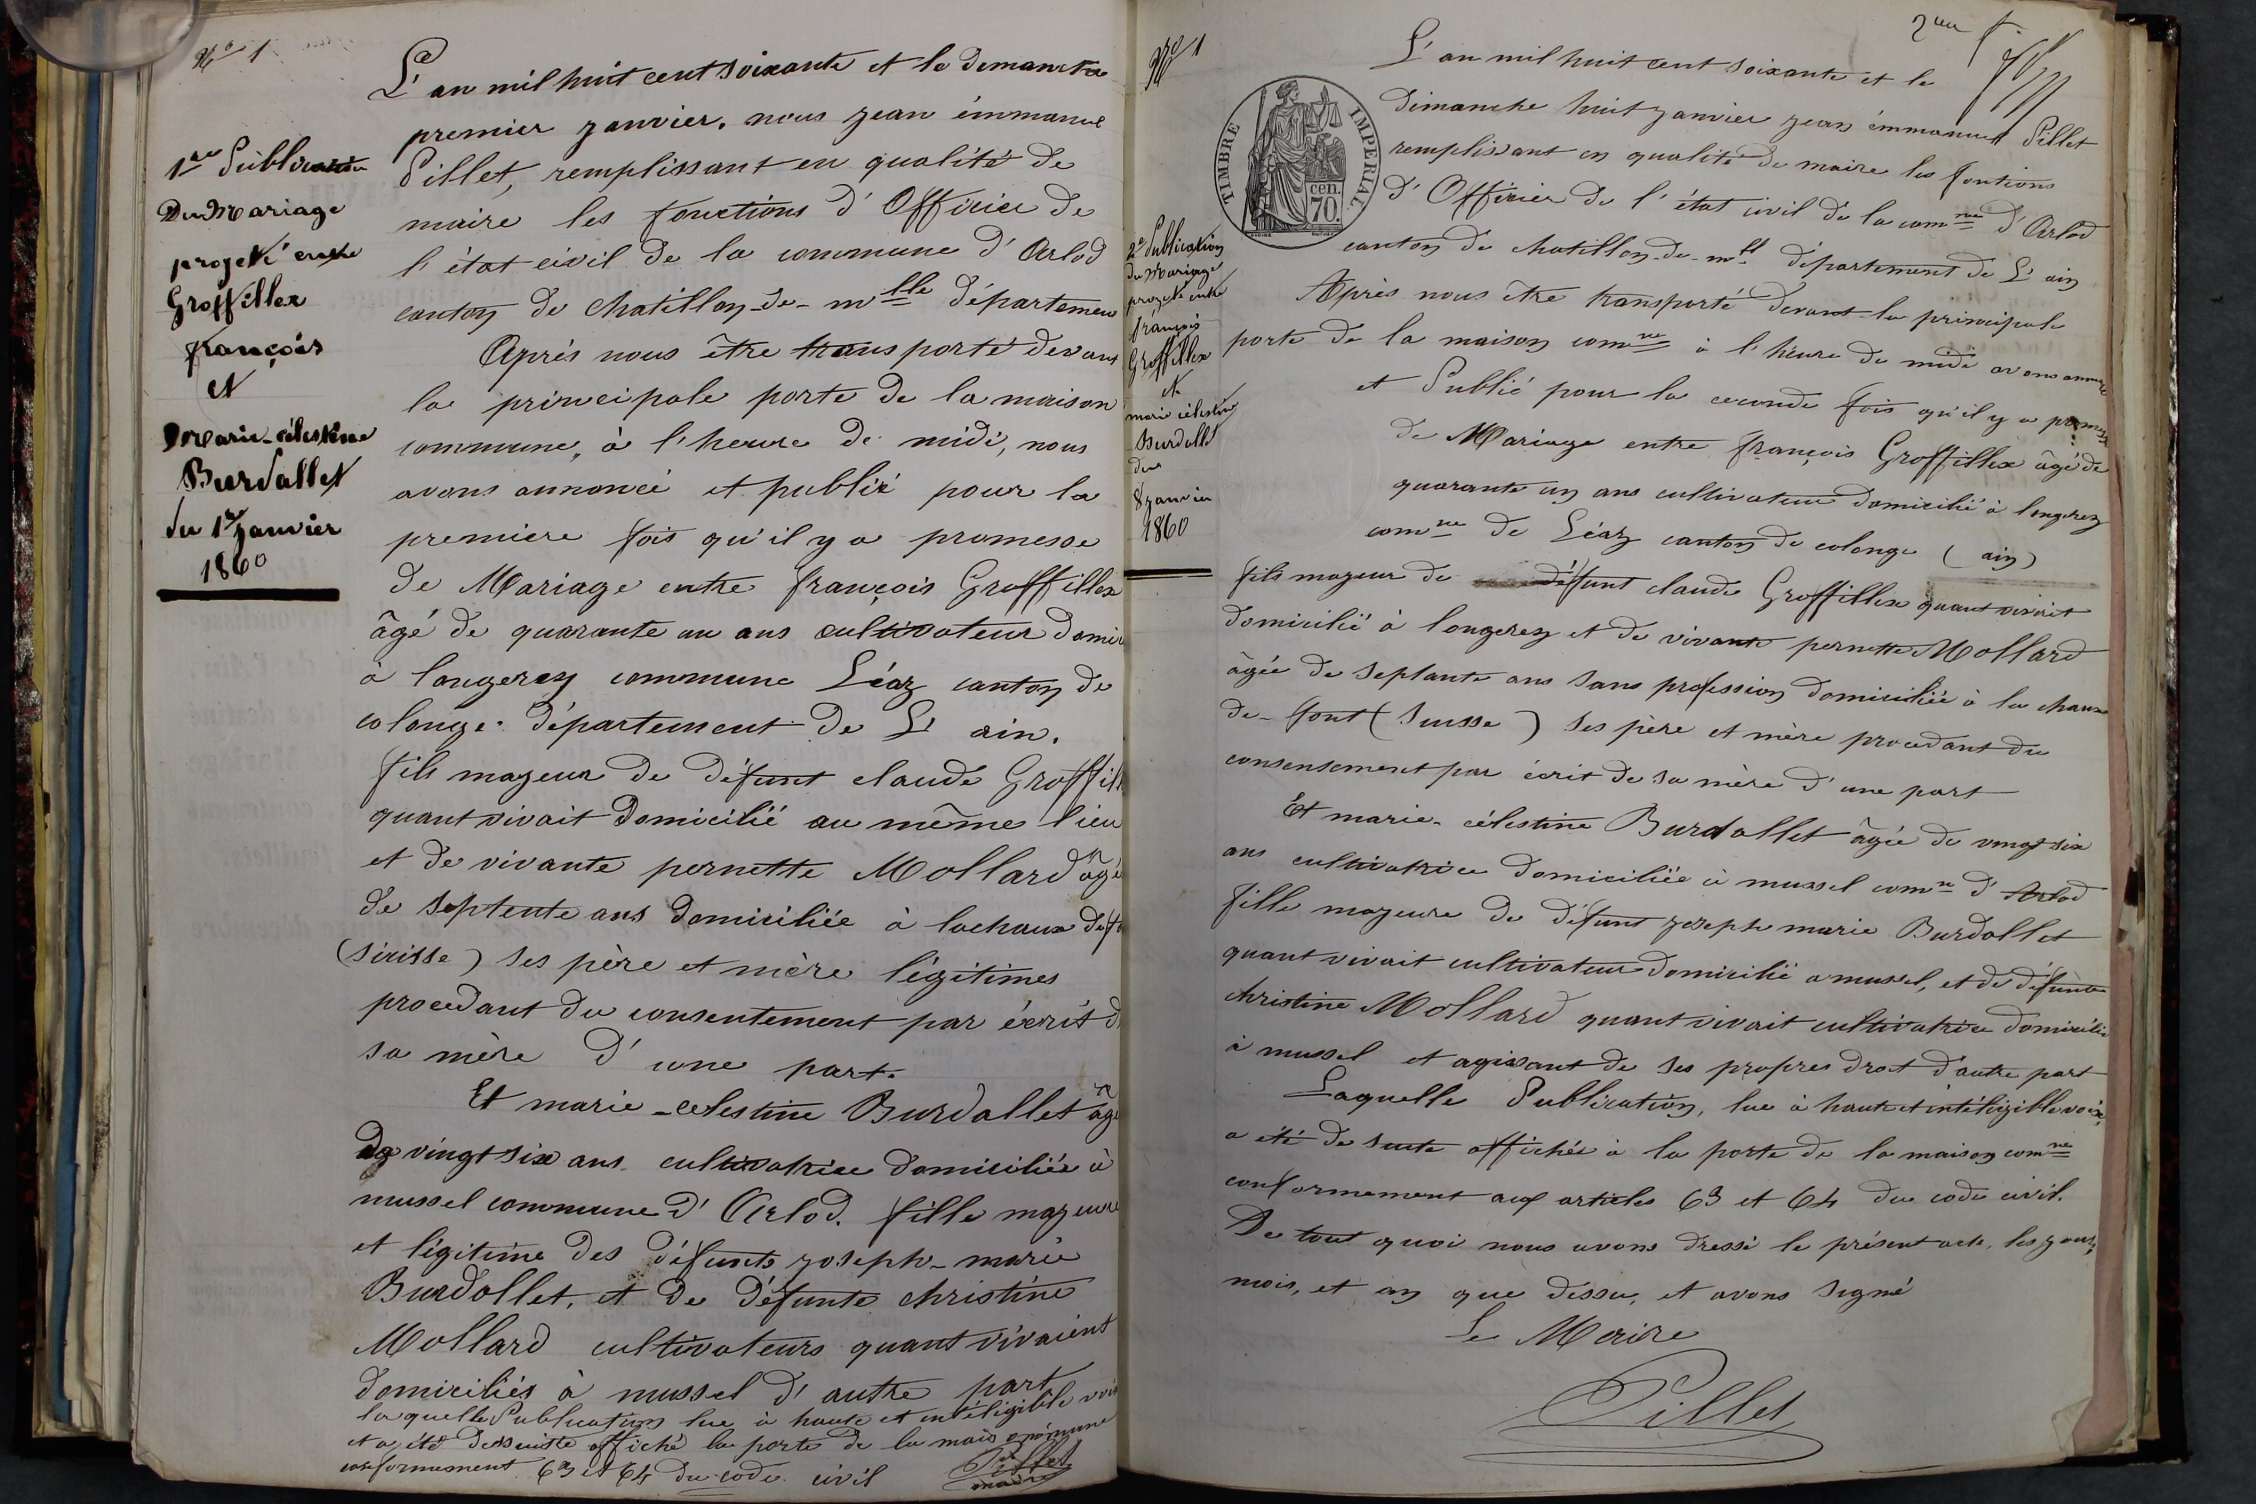 N° 1
1ère Publication
Du Mariage
projeté entre
Groffillex
françois
et
Marie-célestine
Burdallet
du 1er janvier
1860
L'an mil huit cent soixante et le dimanche
premier janvier, nous jean émmanuel
Pillet, remplissant en qualité de
maire les fonctions d'Officier de
l'état civil de la commune d'Arlod
canton de chatillon-de-mlle départemen
Après nous être transporté devant
la principale porte de la maison
commune, à l'heure de midi, nous
avons annoncé et publié pour la
premiere fois qu'il y a promesse
de Mariage entre françois Groffillex
âgé de quarante un ans cultivateur domi
à longerey commune Léaz canton de
colonge département de L'ain.
fils majeur de défunt claude Groffill
quant vivait domicilié au même lieu
et de vivante pernette Mollard âgé
de septente ans domiciliée à lachaux de fo
(siisse) ses père et mère légitimes
procedant du consentement par écrit d
sa mère d'une part.
Et marie-celestine Burdallet âgé
de vingt six ans cultivatrice domiciliée à
mussel commune d'Arlod. fille majeure
et légitime des défunts joseph-marie
Burdollet, et de défunte christine
Mollard cultivateurs quant vivaient
domiciliés à mussel d'autre part
laquelle Publication lue à haute et intéligible voix
et a été desseuiste affiché la porte de la mais
conformement 63 et 64 du code civil
Pillet
maire
2me f.
N° 1
TIMBRE IMPERIAL
70 cen.
2e Publication
du Mariage
projeté entre
françois
Groffillex
et
marie célestine
Burdollet
du
8 janvier
1860
L'an mil huit cent soixante et le
dimanche huit janvier jean émmanuel Pillet
remplissant en qualité de maire les fontions
d'Officier de l'état civil de la comne d'Arlod
canton de chatillon-de-mll département de L'ain
Après nous être transporté devant la principale
porte de la maison comne à l'heure de midi avons annoncé
et Publié pour la ceconde fois qu'il y a promesse
de Mariage entre françois Groffillex âgé de
quarante un ans cultivateur domicilié à longerey
comne de Léaz canton de colonge (ain)
fils majeur de défunt claude Groffillex quant vivait
domicilié à longerey et de vivante pernette Mollard
âgée de septante ans sans profession domiciliée à la chaux
de-font (Suisse) ses père et mère procedant du
consensement par écrit de sa mère d'une part
Et marie-célestine Burdollet âgée de vingt six
ans cultivatrice domiciliée à mussel comne d'Arlod
fille majeure de défunt joseph marie Burdollet
quant vivait cultivateur domicilié a mussel, et de défunte
christine Mollard quant vivait cultivatrice domicilié
à mussel et agissant de ses propres droit d'autre part
Laquelle Publication, lue à haute et intéligible voix,
a été de suite affichée à la porte de la maison comne
conformement aux articles 63 et 64 du code civil.
De tout quoi nous avons dressé le présent acte, les jour,
mois, et an que dessu, et avons signé
Le Maire
Pillet